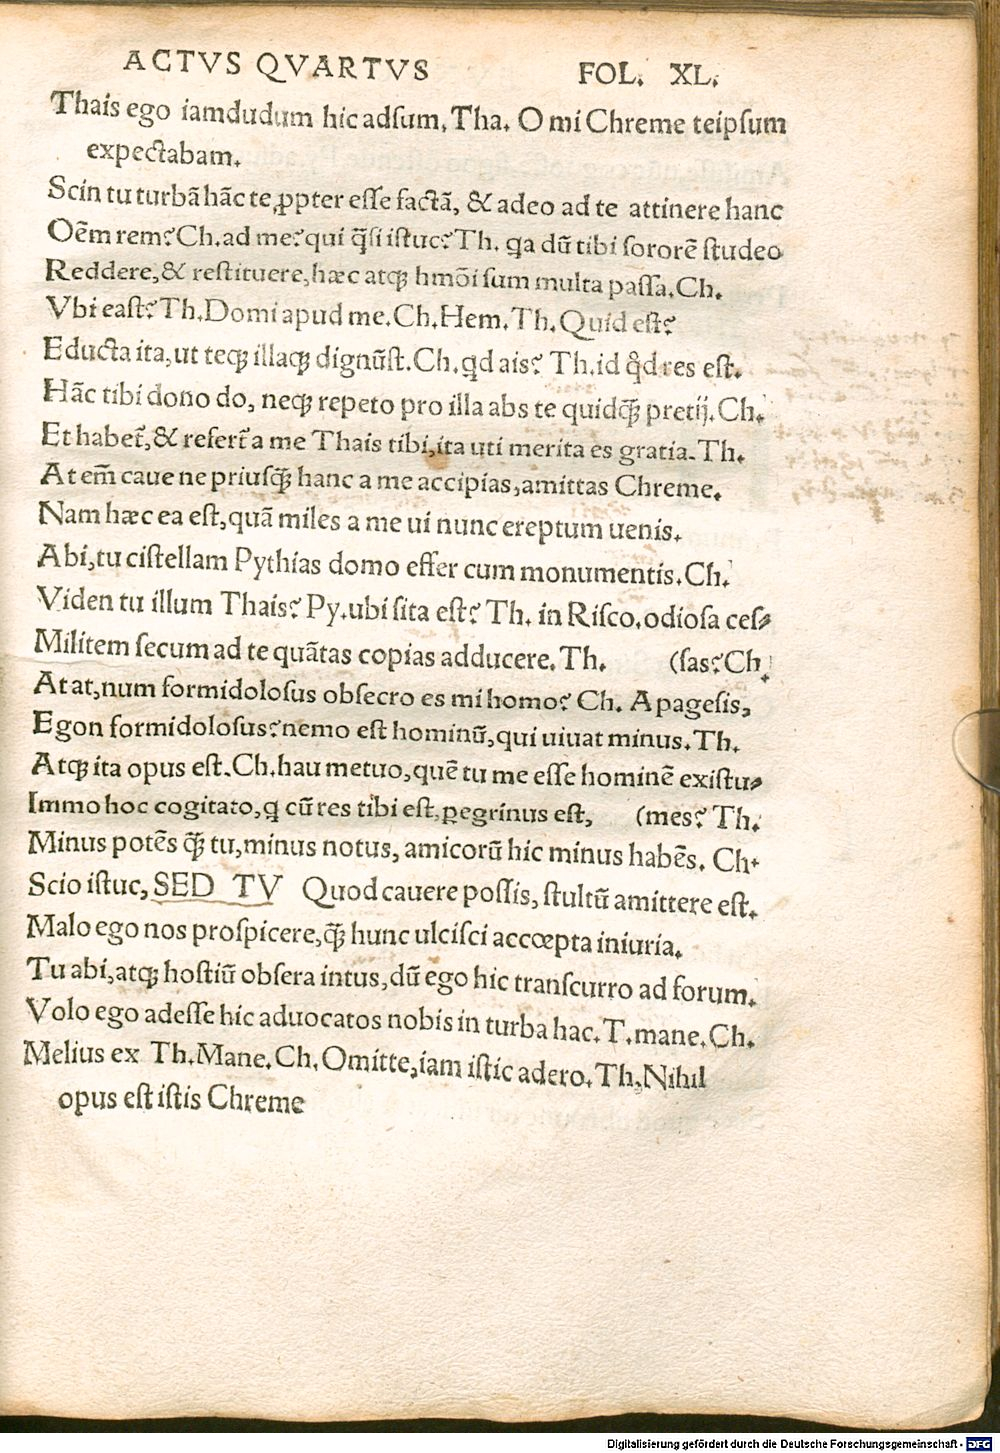 ACTVS QVARTVS FOL. XL.
Thais ego iamdudum hic adſum. Tha. O mi Chreme teipſum
expectabam.
Scin tu turbã hãc te ꝓpter eſſe factã, & adeo ad te attinere hanc
Oẽm rem? Ch. ad me? qui q̃ſi iſtuc? Th. ꝗa dũ tibi ſororẽ ſtudeo
Reddere, & reſtituere, hæc atqꝫ hmõi ſum multa paſſa. Ch.
Vbi eaſt? Th. Domi apud me. Ch. Hem. Th. Quid eſt?
Educta ita, ut teqꝫ illaqꝫ dignũſt. Ch. ꝗd ais? Th. id qd̓ res eſt.
Hãc tibi dono do, neqꝫ repeto pro illa abs te quidqꝫ̃ pretij. Ch.
Et habet̃, & refert̃ a me Thais tibi, ita uti merita es gratia. Th.
At em̃ caue ne priuſqꝫ̃ hanc a me accipias, amittas Chreme.
Nam hæc ea eſt, quã miles a me ui nunc ereptum uenis.
Abi, tu ciſtellam Pythias domo effer cum monumentis. Ch.
Viden tu illum Thais? Py. ubi ſita eſt? Th. in Riſco. odioſa ceſ⸗
Militem ſecum ad te quãtas copias adducere. Th. (ſas? Ch.
At at, num formidoloſus obſecro es mi homo? Ch. Apageſis,
Egon formidoloſus? nemo eſt hominũ, qui uiuat minus. Th.
Atqꝫ ita opus eſt. Ch. hau metuo, quẽ tu me eſſe hominẽ exiſtu⸗
Immo hoc cogitato, ꝗ cũ res tibi eſt, ꝑegrinus eſt, (mes? Th.
Minus potẽs qꝫ̃ tu, minus notus, amicorũ hic minus habẽs. Ch.
Scio iſtuc, SED TV Quod cauere poſſis, ſtultũ amittere eſt.
Malo ego nos proſpicere, qꝫ̃ hunc ulciſci accœpta iniuria.
Tu abi, atqꝫ hoſtiũ obſera intus, dũ ego hic tranſcurro ad forum.
Volo ego adeſſe hic aduocatos nobis in turba hac. T. mane. Ch.
Melius ex Th. Mane. Ch. Omitte, iam iſtic adero. Th. Nihil
opus eſt iſtis Chreme
Digitalisierung gefördert durch die Deutsche Forschungsgemeinschaft - DFG